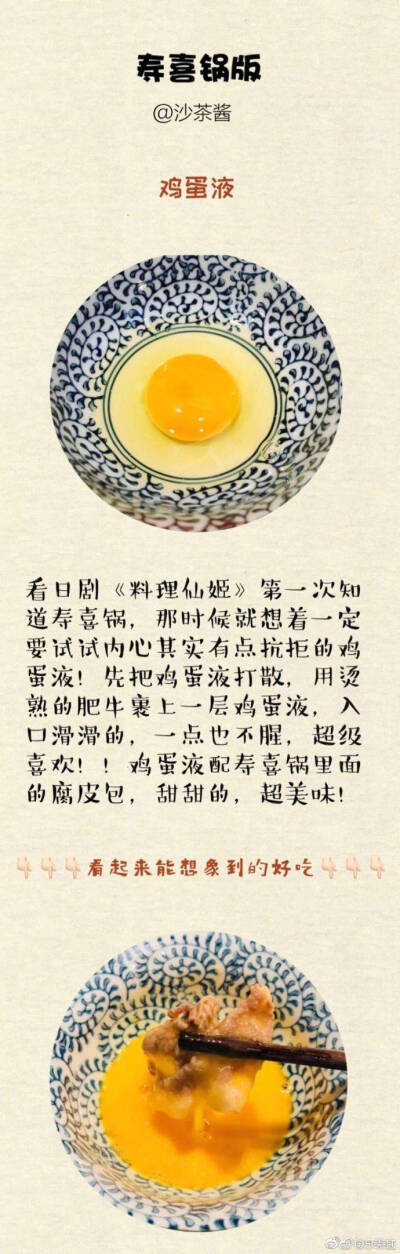 寿喜锅版
@沙茶酱
鸡蛋液
看日剧《料理仙姬》第一次知
道寿喜锅，那时候就想着一定
要试试内心其实有点抗拒的鸡
蛋液！先把鸡蛋液打散，用烫
熟的肥牛裹上一层鸡蛋液，入
口滑滑的，一点也不腥，超级
喜欢！！鸡蛋液配寿喜锅里面
的腐皮包，甜甜的，超美味！
👇🏻👇🏻👇🏻看起来能想象到的好吃👇🏻👇🏻👇🏻